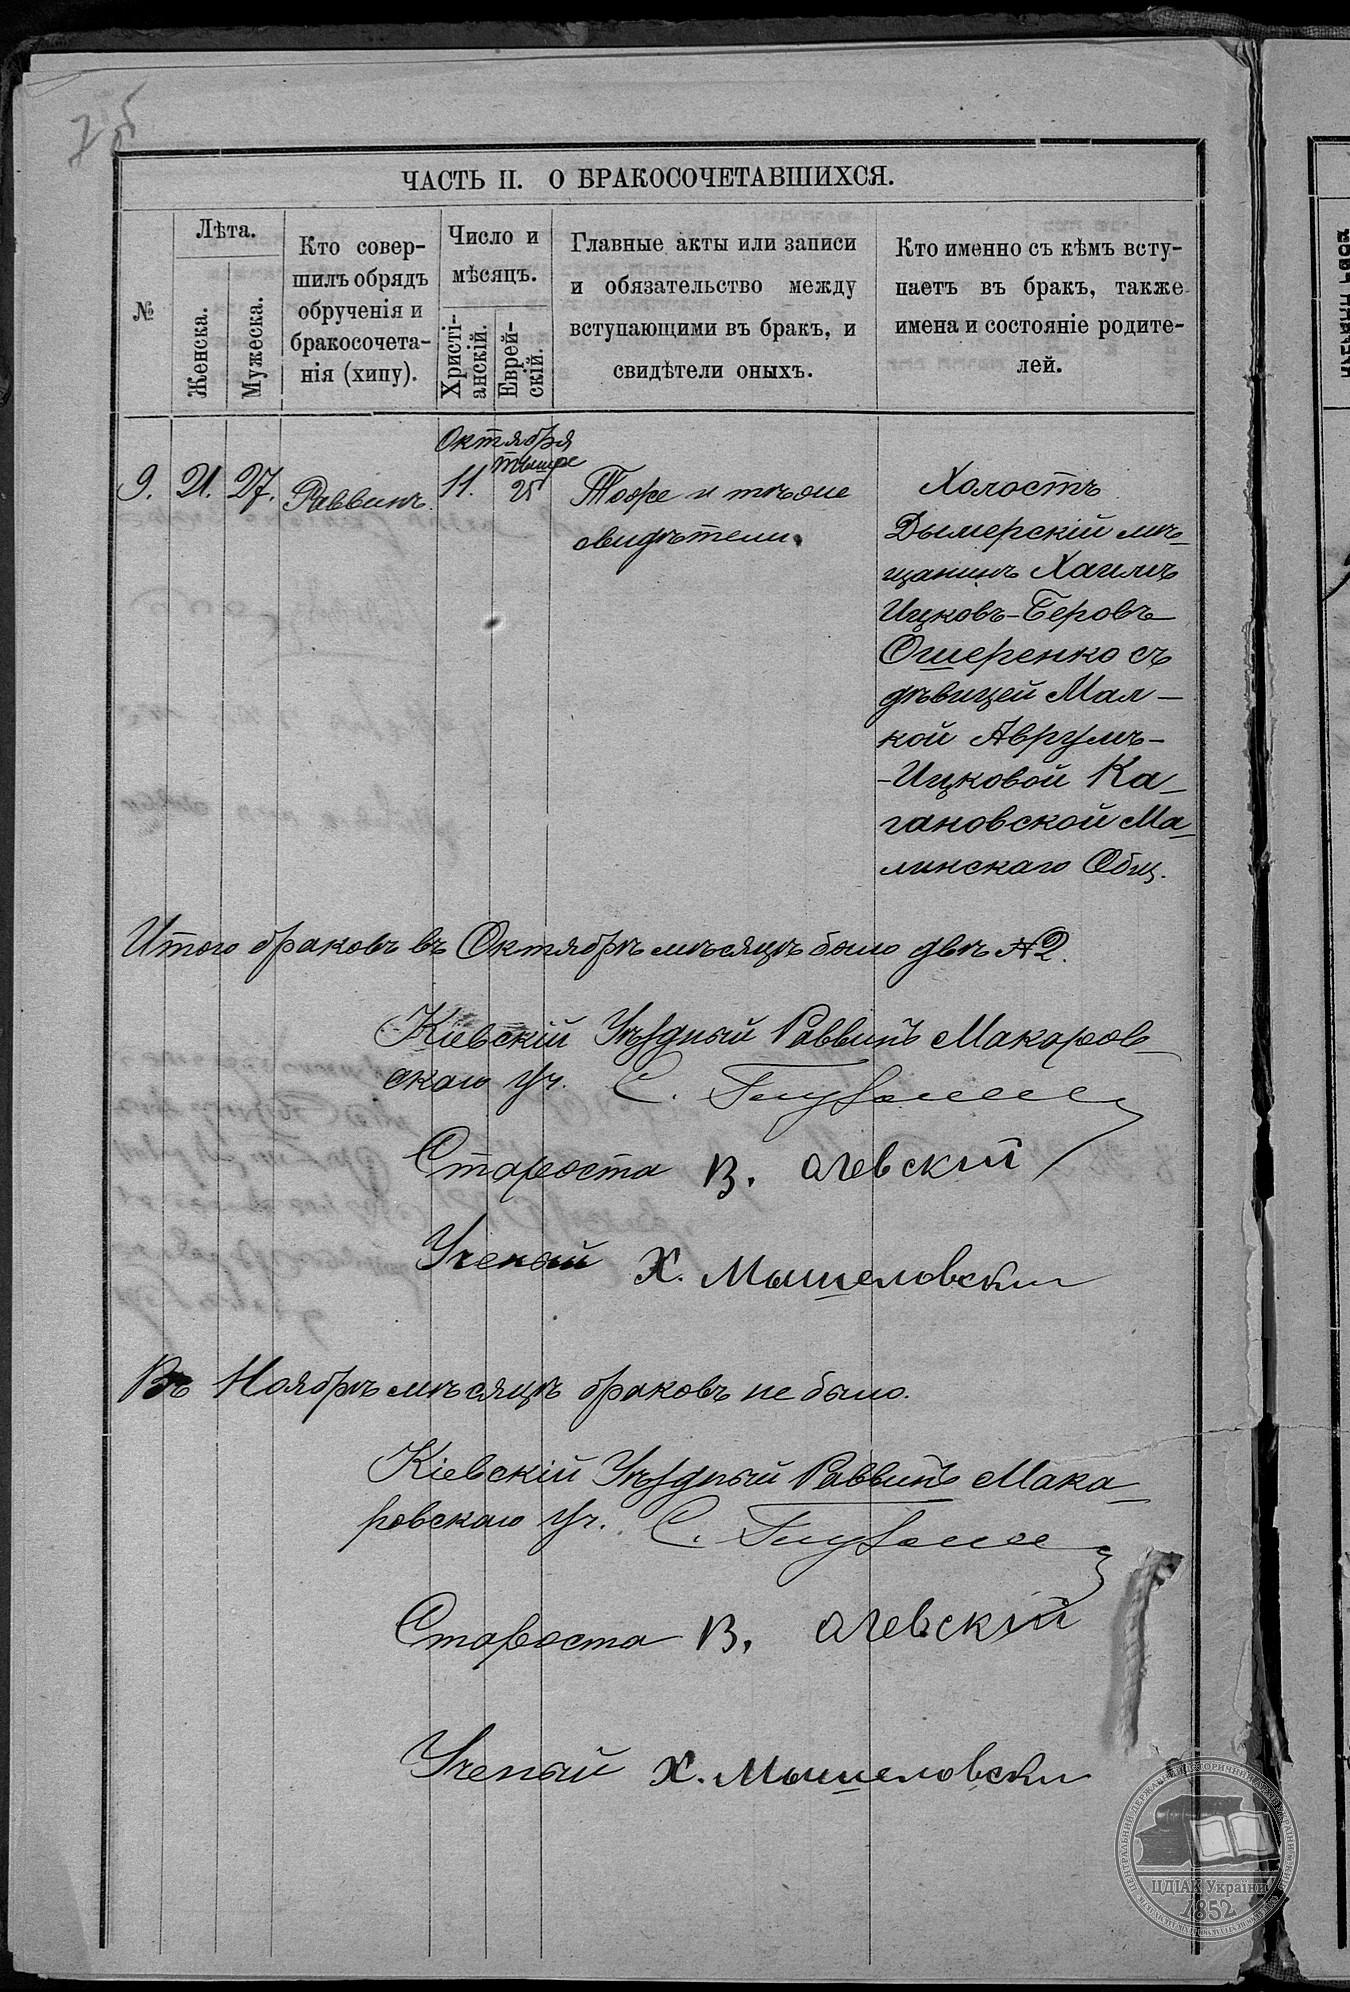 ЧАСТЬ II. О БРАКОСОЧЕТАВШИХСЯ.
№
Лѣта.
Женска.
Мужеска.
Кто совер-
шилъ обрядъ
обрученія и
бракосочета-
нія (хипу).
Число и
мѣсяцъ.
Христі-
анскій.
Еврей-
скій.
Главные акты или записи
и обязательство между
вступающими въ бракъ, и
свидѣтели оныхъ.
Кто именно съ кѣмъ всту-
паетъ въ бракъ, также
имена и состояніе родите-
лей.
Октября
тышре
9. 21. 27. Раввинъ. 11. 25
Тоже и тѣ же
свидѣтели.
Холостъ
Дымерскій мѣ-
щанинъ Хаимъ
Ицковъ-Беровъ
Ошеренко съ
дѣвицей Мал-
кой Аврумъ-
-Ицковой Ка-
гановской Ма-
линскаго Общ.
Итого браковъ въ Октябрѣ мѣсяцѣ было двѣ №2.
Кіевскій Уѣздный Раввинъ Макаров-
скаго Уч. С.
Староста В. ачевскій
Ученый Х. Мышеловски
Въ Ноябрѣ мѣсяцѣ браковъ не было.
Кіевскій Уѣздный Раввинъ Мака-
ровскаго Уч. С.
Староста В. ачевскій
Ученый Х. Мышеловски
ЦДІАК України
1852